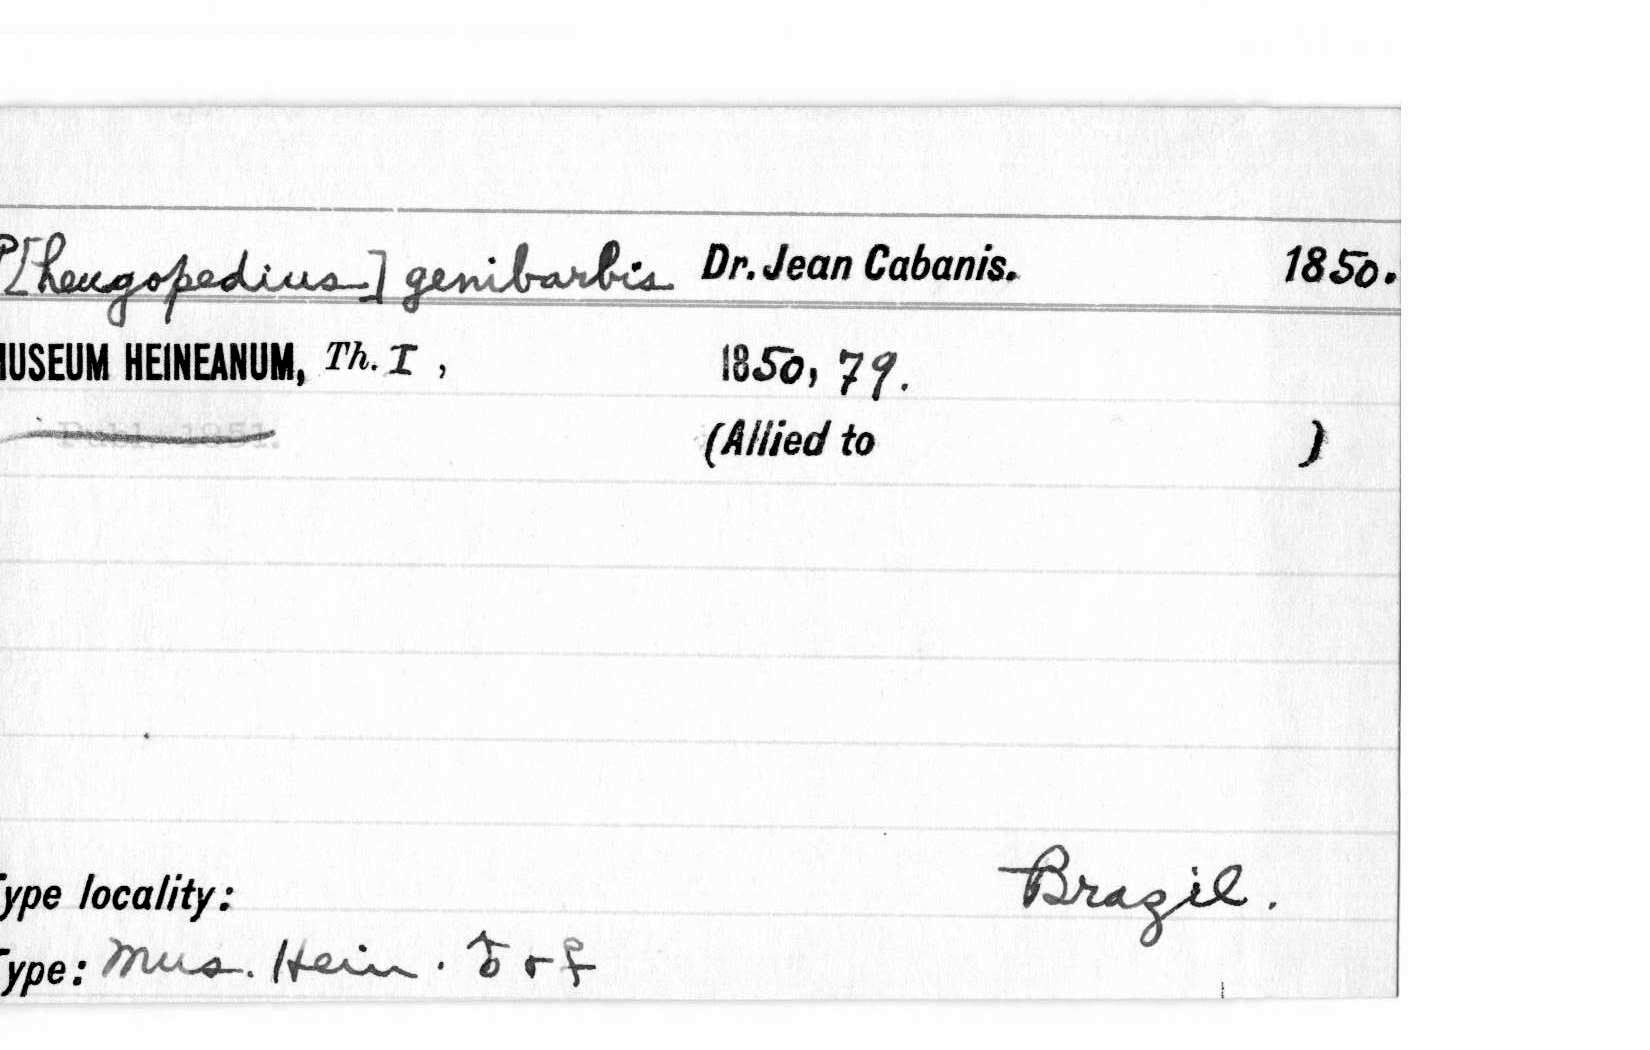 P[heugopedius] genibarbis Dr. Jean Cabanis. 1850.
MUSEUM HEINEANUM, Th. I , 1850, 79.
Publ. 1851. (Allied to )
Type locality: Brazil.
Type: Mus. Hein. ♂ + ♀